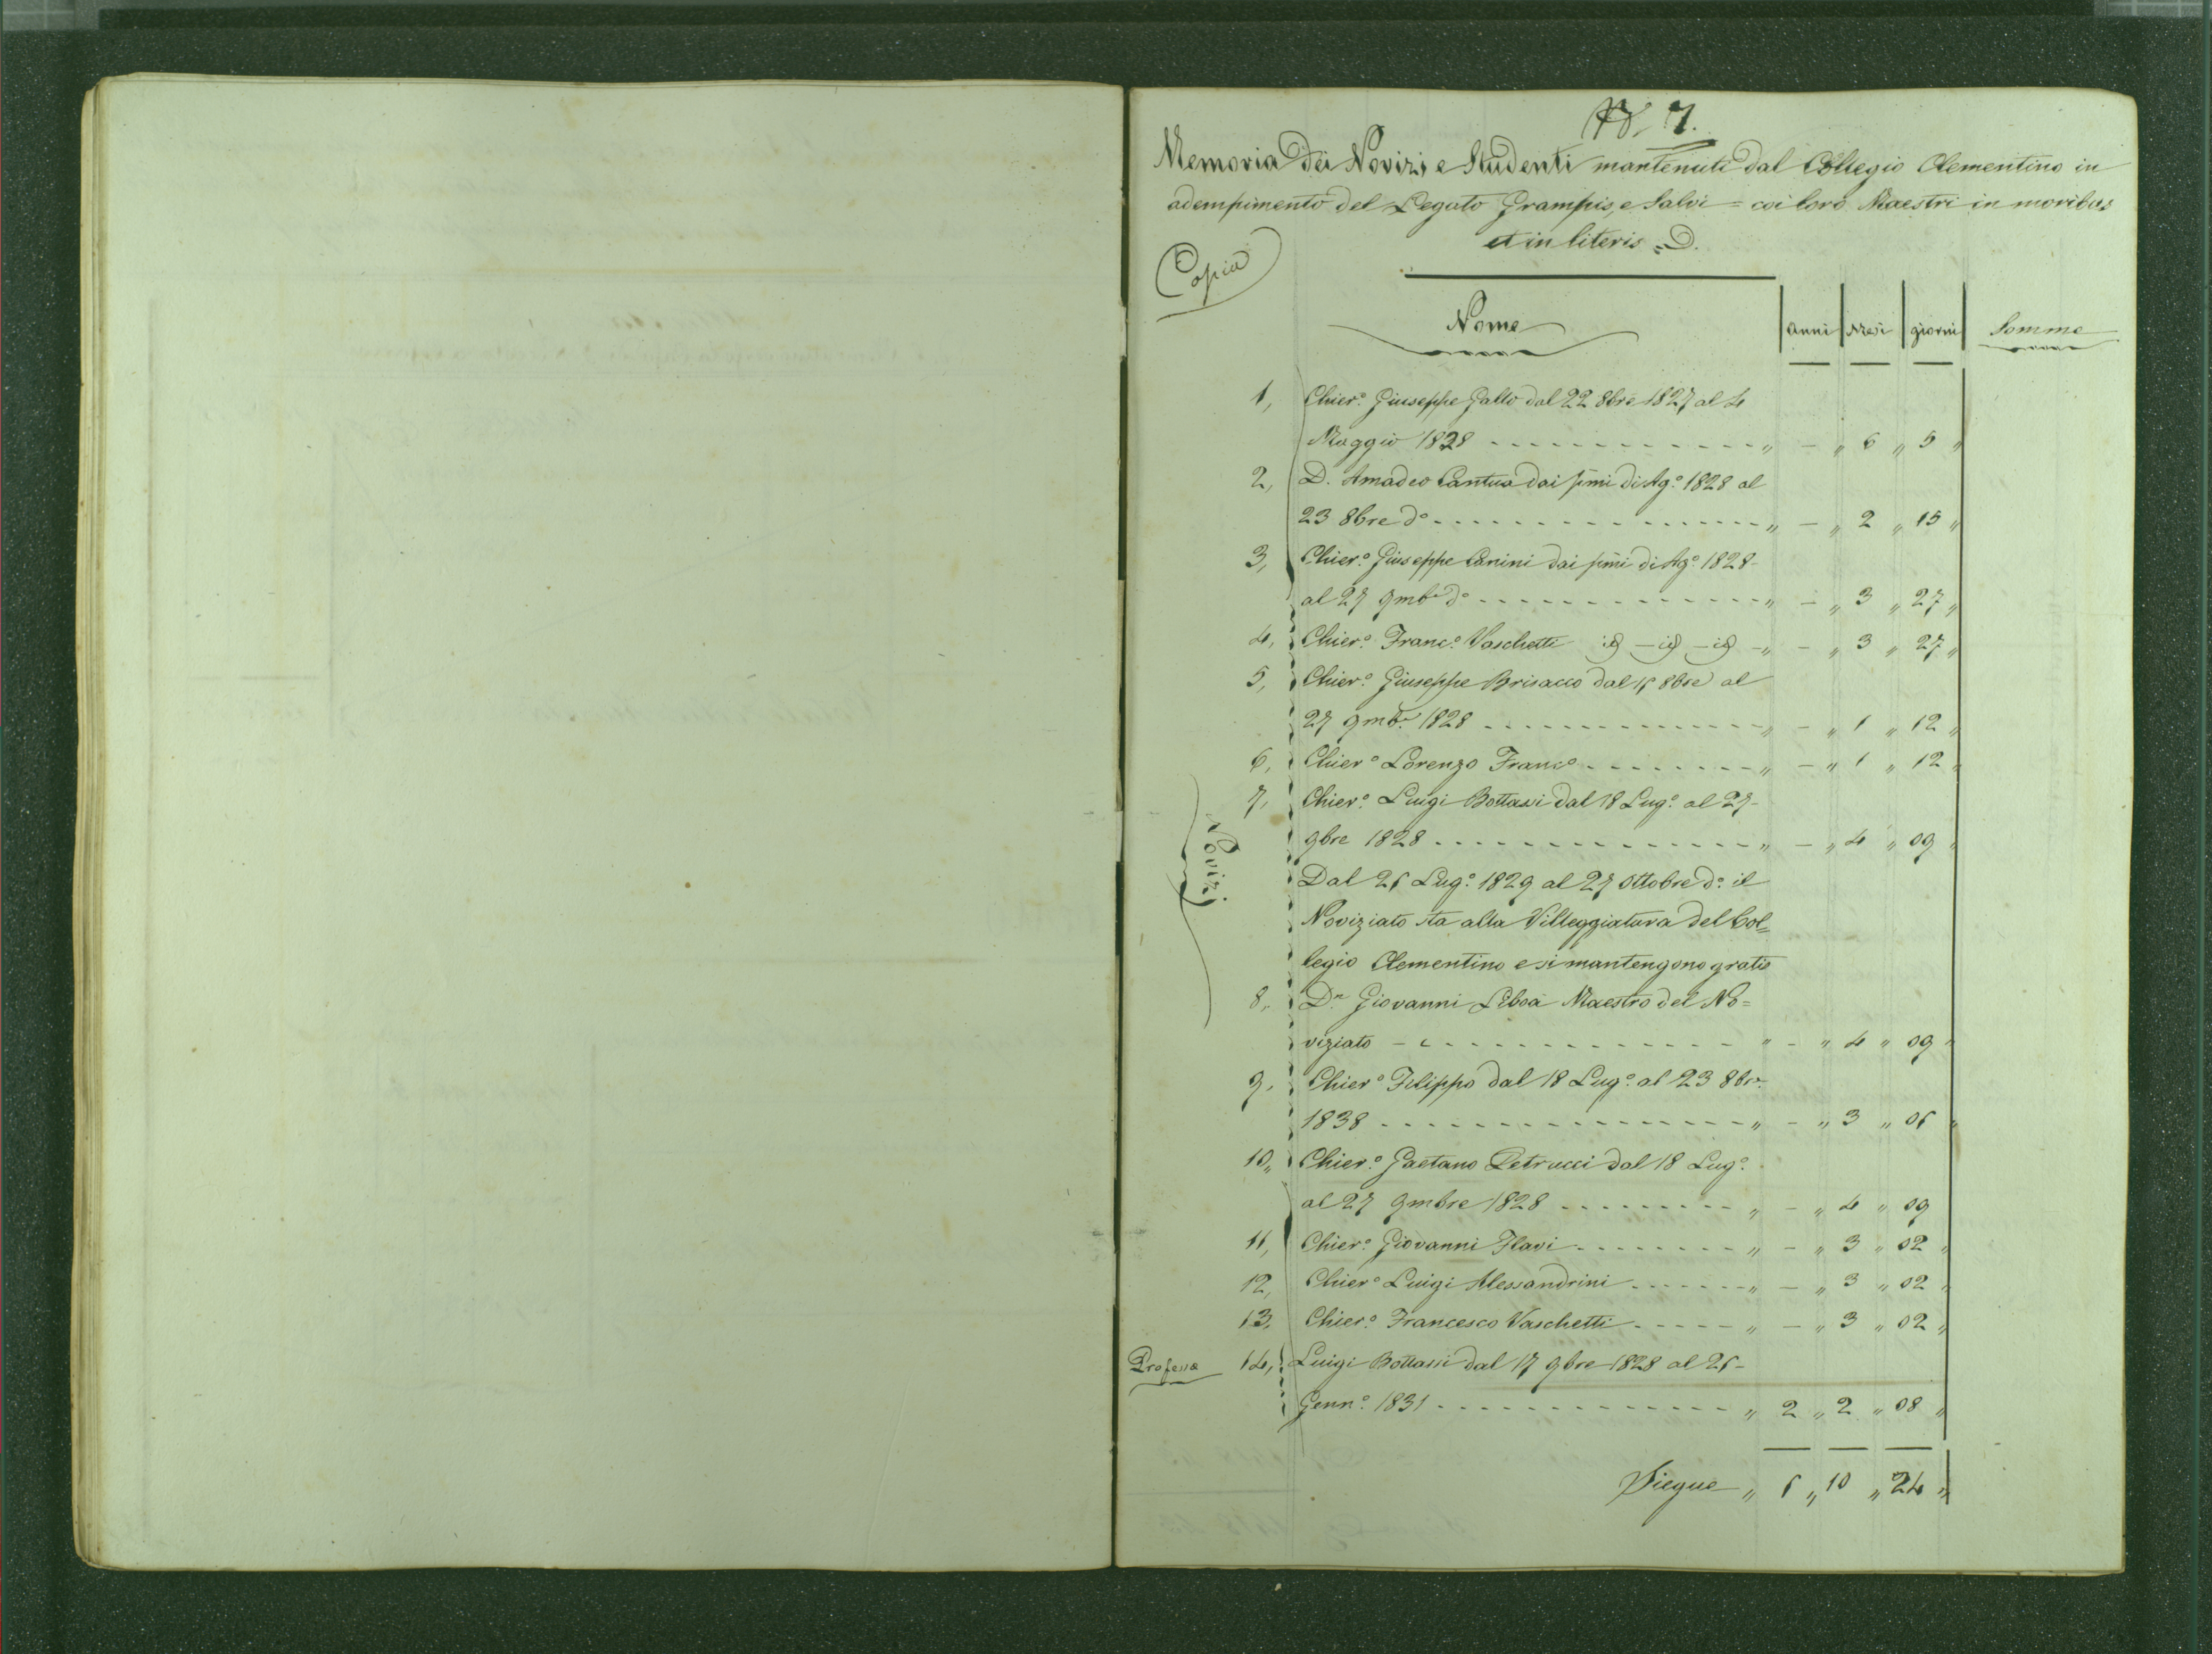 N. 7.
Memoria dei Novizi e Studenti mantenuti dal Collegio Clementino in
adempimento del Legato Grampis, e Salvi = coi loro Maestri in moribus
et in literis = D.
Copia
Nome anni Mesi giorni Somme
1, Chier.° Giuseppe Gallo dal 22 8bre 1827 al 4
Maggio 1828 - - - - - - - - - - - - - „ - „ 6 „ 5 „
2, D. Amadeo Cantua dai pmi di Ag.° 1828 al
23 8bre d° - - - - - - - - - - - - - - - - „ - „ 2 „ 15 „
3, Chier.° Giuseppe Canini dai pmi di Ag.° 1828-
al 27 9mbe d° - - - - - - - - - - - - - - „ - „ 3 „ 27 „
4, Chier.° Franc.° Vaschetti id - id - id - „ - „ 3 „ 27 „
5, Chier.° Giuseppe Brisacco dal 15 8bre al
27 9mbe 1828 - - - - - - - - - - - - - - „ - „ 1 „ 12 „
6, Chier° Lorenzo Franco - - - - - - - - - „ - „ 1 „ 12 „
7, Chier.° Luigi Bottassi dal 18 Lug.° al 27-
9bre 1828 - - - - - - - - - - - - - - - „ - „ 4 „ 09 „
Dal 25 Lug.° 1829 al 27 Ottobre d° il
Noviziato sta alla Villeggiatura del Col=
legio Clementino e si mantengono gratis
Novizi
8, Dn Giovanni Liboà Maestro del No=
viziato - - - - - - - - - - - - - - - „ - „ 4 „ 09 „
9, Chier° Filippo dal 18 Lug.° al 23 8bre
1838 - - - - - - - - - - - - - - - - - „ - „ 3 „ 05 „
10,, Chier.° Gaetano Petrucci dal 18 Lug.°
al 27 9mbre 1828 - - - - - - - - - - „ - „ 4 „ 09
11, Chier.° Giovanni Flavi - - - - - - - - „ - „ 3 „ 02 „
12, Chier° Luigi Alessandrini - - - - - - - „ - „ 3 „ 02 „
13, Chier.° Francesco Vaschetti - - - - - „ - „ 3 „ 02 „
Professa 14, Luigi Bottassi dal 17 9bre 1828 al 25-
Genn.° 1831 - - - - - - - - - - - - - - „ 2 „ 2 „ 08 „
Siegue „ 5 „ 10 „ 24 „